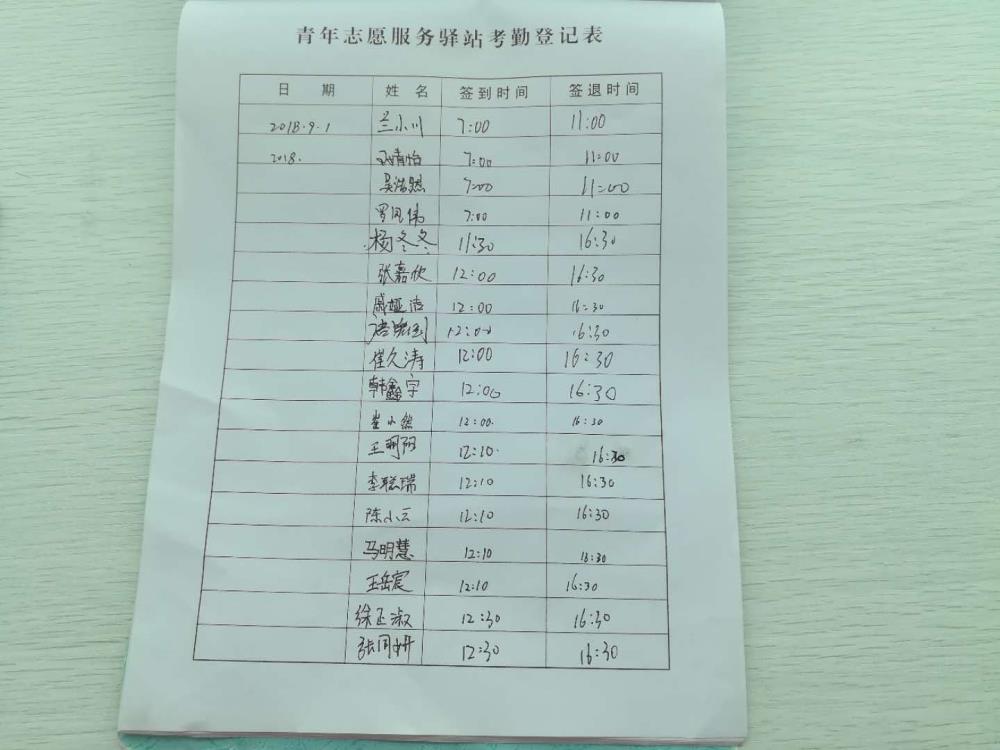 青年志愿服务驿站考勤登记表
日 期 姓 名 签到时间 签退时间
2018.9.1 兰小川 7:00 11:00
2018. 青怡 7:00 11:00
吴浩然 7:00 11:00
罗凤伟 7:00 11:00
杨冬冬 11:30 16:30
张嘉欣 12:00 16:30
戚娅洁 12:00 16:30
12:00 16:30
崔久涛 12:00 16:30
韩鑫宇 12:00 16:30
崔小然 12:00. 16:30
王明阳 12:10. 16:30
李聪瑞 12:10 16:30
陈小云 12:10 16:30
马明慧 12:10 16:30
王岳宸 12:10 16:30
徐正淑 12:30 16:30
张同 12:30 16:30